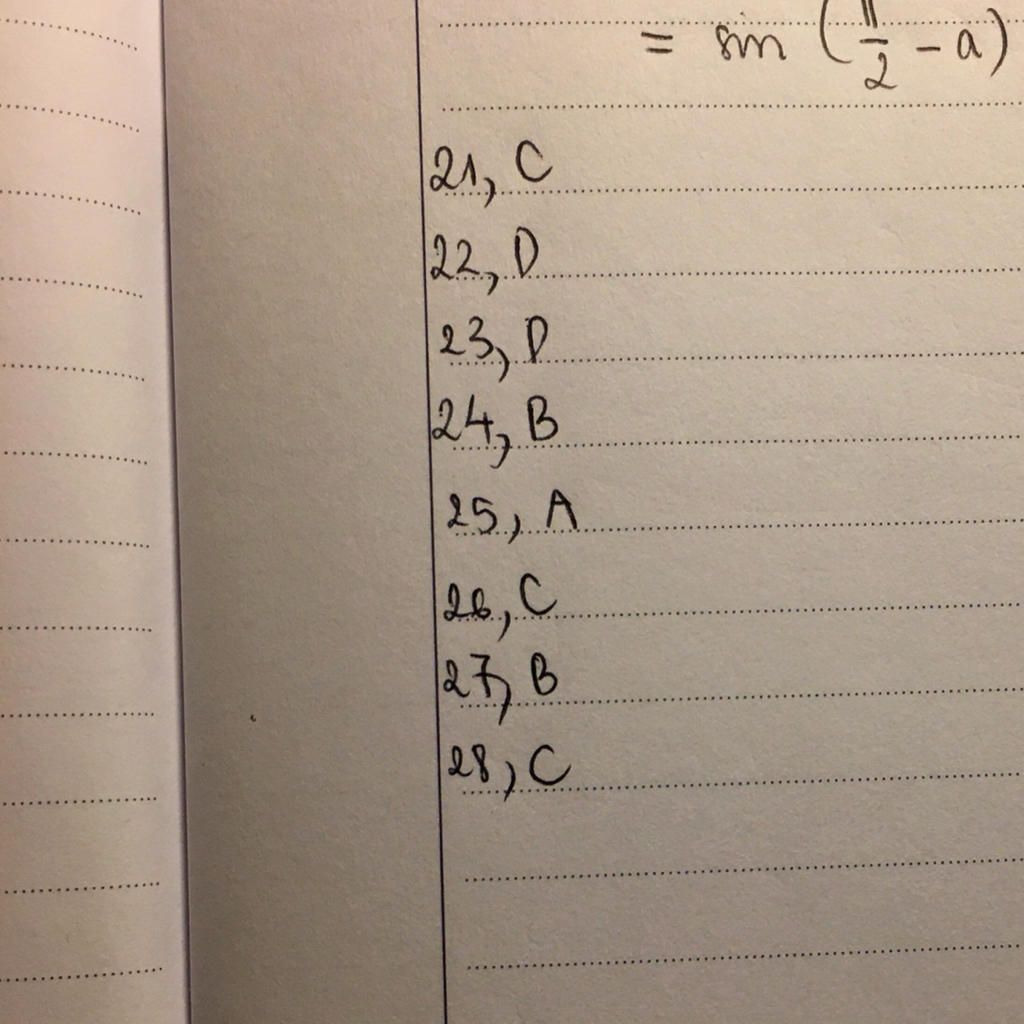 = sin (π/2 - a)
21, C
22, D
23, D
24, B
25, A
26, C
27, B
28, C